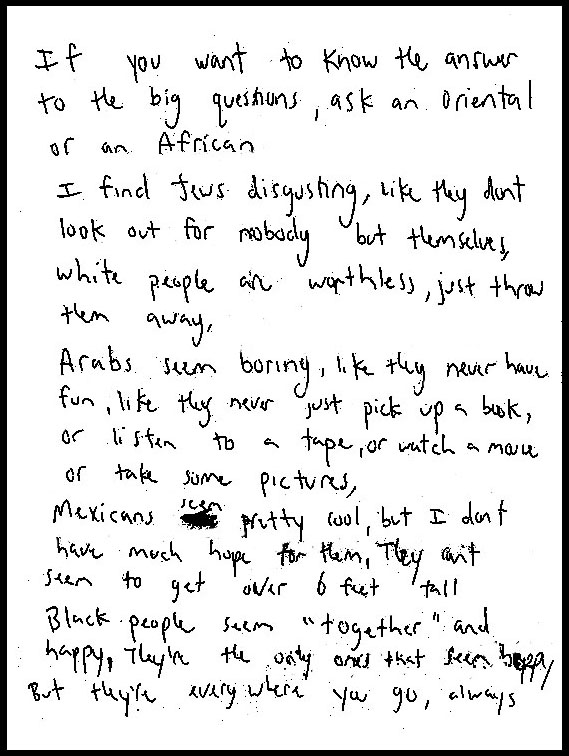 If you want to know the answer
to the big questions, ask an Oriental
or an African
I find Jews disgusting, like they dont
look out for nobody but themselves,
white people are worthless, just throw
them away,
Arabs seem boring, like they never have
fun, like they never just pick up a book,
or listen to a tape, or watch a movie
or take some pictures,
Mexicans seem pretty cool, but I dont
have much hope for them, They can't
seem to get over 6 feet tall
Black people seem "together" and
happy, They're the only ones that seem happy
But they're everywhere you go, always